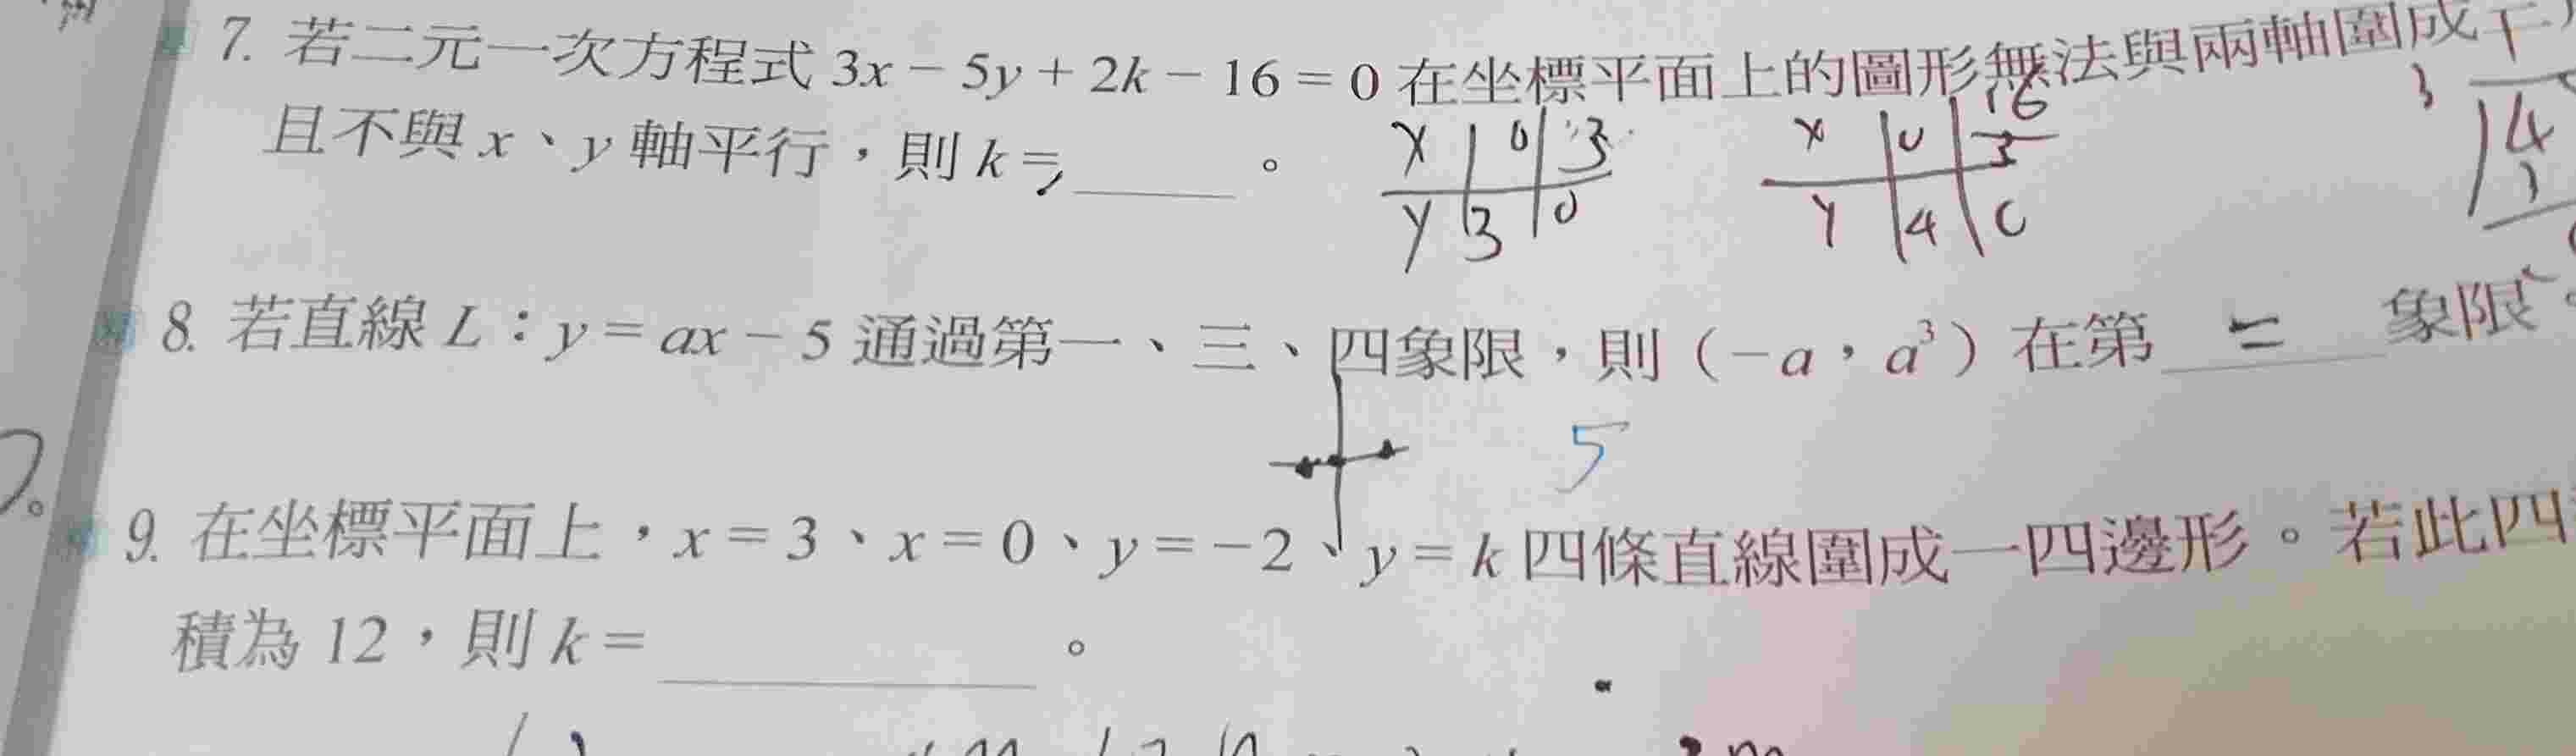 7. 若二元一次方程式 3x − 5y + 2k − 16 = 0 在坐標平面上的圖形無法與兩軸圍成
且不與 x、y 軸平行，則 k = ______ 。
x 0 3
y 3 0
x 0 16/3
y 4 0
3
14
8. 若直線 L：y = ax − 5 通過第一、三、四象限，則（−a，a³）在第 二 象限
5
9. 在坐標平面上，x = 3、x = 0、y = −2、y = k 四條直線圍成一四邊形。若此四
積為 12，則 k = ______ 。